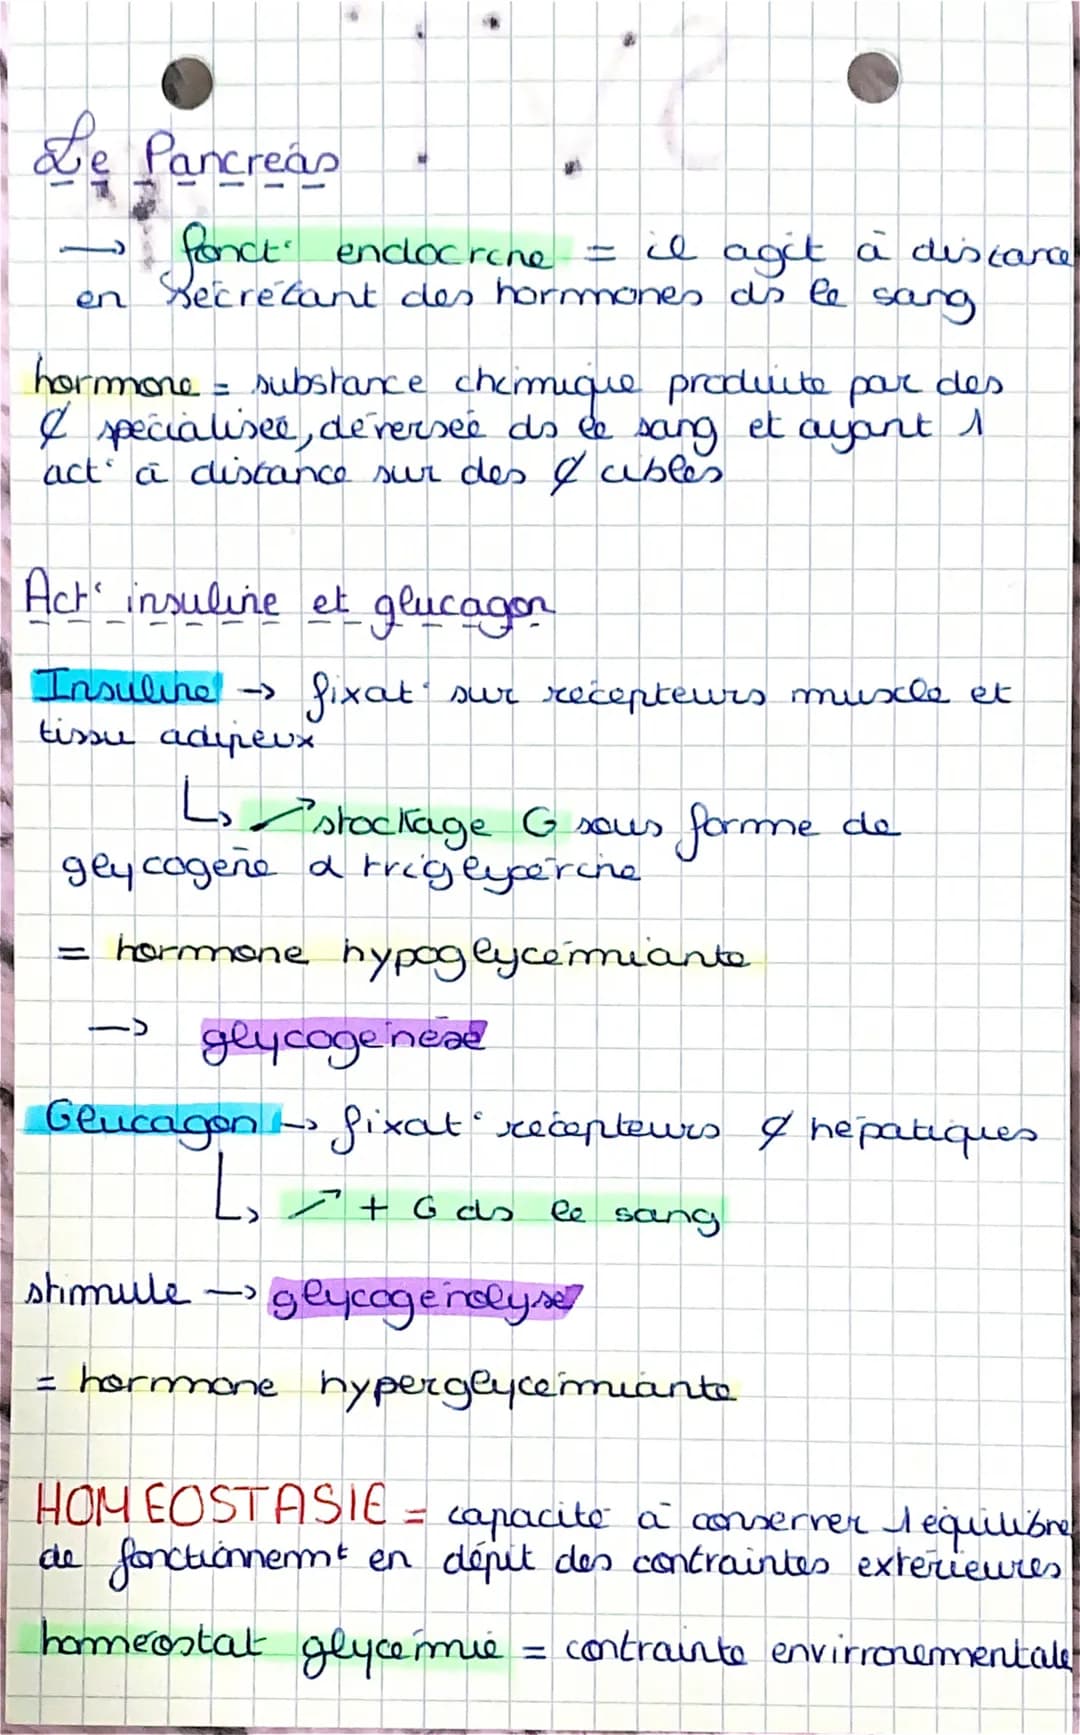 Le Pancréas
→ fonct° endocrine = il agit à distance
en secrétant des hormones ds le sang
hormone = substance chimique produite par des
¢ spécialisée, déversée ds le sang et ayant 1
act° à distance sur des ¢ cibles
Act° insuline et glucagon
Insuline → fixat° sur récepteurs muscle et
tissu adipeux
↳ ↗ stockage G sous forme de
glycogène a triglycérine
= hormone hypoglycémiante
→ glycogenèse
Glucagon → fixat° récepteurs ¢ hépatiques
↳ ↗ + G ds le sang
stimule → glycogénolyse
= hormone hyperglycémiante
HOMEOSTASIE = capacité à conserver 1 équilibre
de fonctionnemnt en dépit des contraintes extérieures
homéostat glycémie = contrainte envirronementale